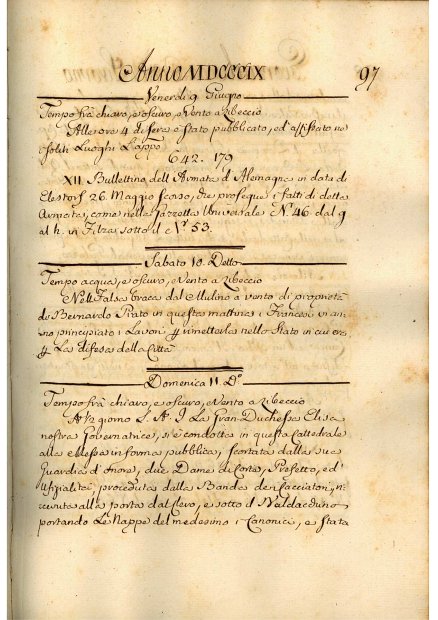 Anno MDCCCIX 97
Venerdi 9 Giugno
Tempo frà chiaro, e oscuro, e Vento a Libeccio
Alle ore 4 di sera è stato pubblicato, ed' affissato ne
soliti Luoghi L'appo
642. 179
XII Bullettino dell Armata d'Alemagna in data di
26. Maggio scorso, che prosegue i fatti di detta
Armata, come nella Gazzetta Universale N.º 46 dal g
al h. in Filza sotto il Nº 53.
Sabato 10. Detto
Tempo acqua, e oscuro, e Vento a Libeccio
Nell Falsa braca dal Mulino a vento di proprietà
di Bernardo Prato in questa mattina i Francesi vi an
no principiato i Lavori rimetterla nello Stato in cui era
La difesa della Città
Domenica 11. Dº
Tempo frà chiaro, e oscuro, e Vento a Libeccio
A ½ giorno S. A. I. La Gran Duchessa Elisa
nostra Governatrice, si è condotta in questa Cattedrale
alla Messa in forma pubblica, scortata dalla sua
Guardia d'Onore, due Dame di Corte, Prefetto, ed'
Ufizialità, preceduta dalla Banda de Cacciatori, ri
cevuta alla porta dal Clero, e sotto il Baldacchino
portando Le Nappe del medesimo i Canonici, e stata